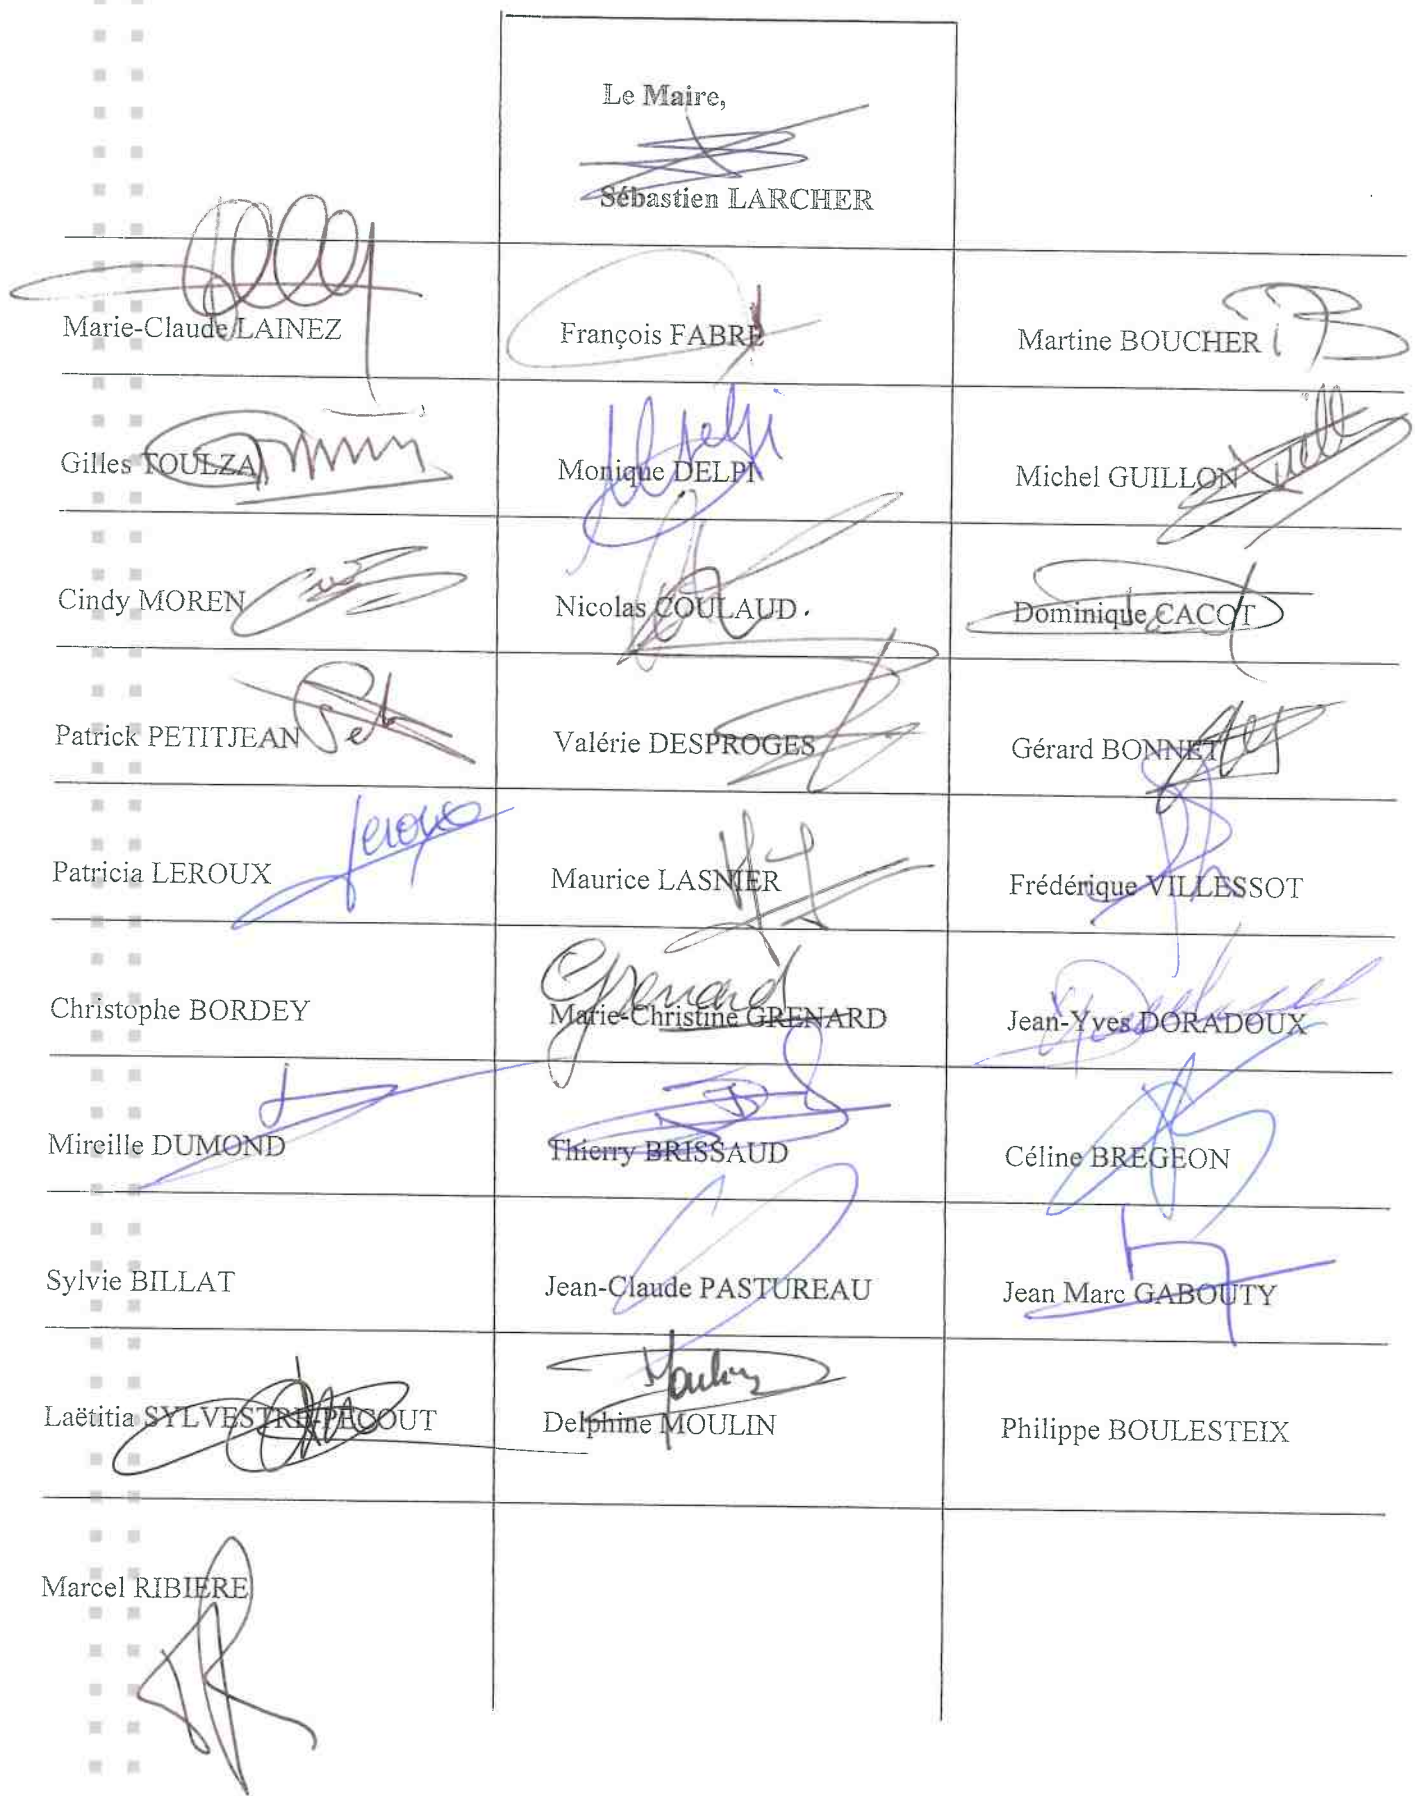 Le Maire,
Sébastien LARCHER
Marie-Claude LAINEZ
François FABRE
Martine BOUCHER
Gilles TOULZA
Monique DELPI
Michel GUILLON
Cindy MOREN
Nicolas COULAUD.
Dominique CACOT
Patrick PETITJEAN
Valérie DESPROGES
Gérard BONNET
Leroux
Patricia LEROUX
Maurice LASNIER
Frédérique VILLESSOT
Grenard
Christophe BORDEY
Marie-Christine GRENARD
Jean-Yves DORADOUX
Mireille DUMOND
Thierry BRISSAUD
Céline BREGEON
Sylvie BILLAT
Jean-Claude PASTUREAU
Jean Marc GABOUTY
Moulin
Laëtitia SYLVESTRE-PECOUT
Delphine MOULIN
Philippe BOULESTEIX
Marcel RIBIERE